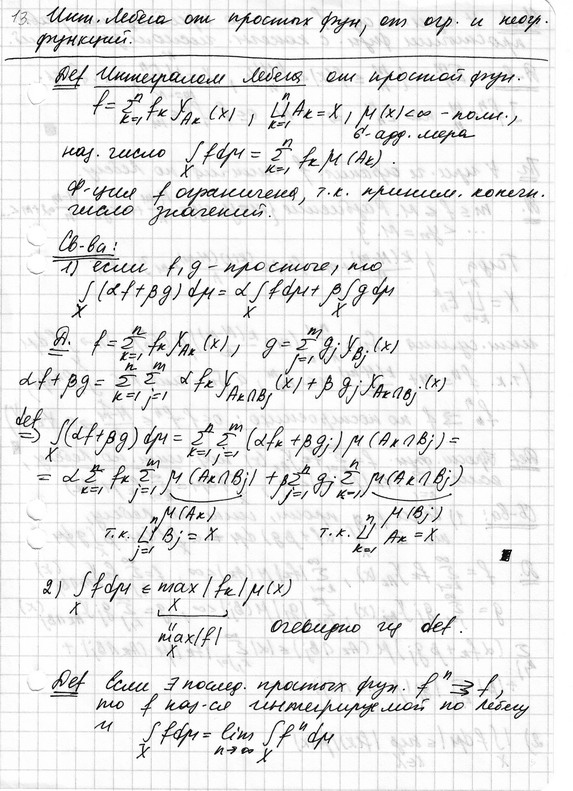 13. Инт. Лебега от простых фун., от огр. и неогр.
функций.
Def Интегралом Лебега от простой фун.
f = Σ_{k=1}^{n} f_k χ_{A_k}(x), ⊔_{k=1}^{n} A_k = X, μ(x)<∞ - полн.,
σ-адд. мера
наз. число ∫_X f dμ = Σ_{k=1}^{n} f_k μ(A_k).
Ф-ция f ограничена, т.к. приним. конечн.
число значений.
Св-ва:
1) если f, g - простые, то
∫_X (αf + βg) dμ = α ∫_X f dμ + β ∫_X g dμ
Д. f = Σ_{k=1}^{n} f_k χ_{A_k}(x), g = Σ_{j=1}^{m} g_j χ_{B_j}(x)
αf + βg = Σ_{k=1}^{n} Σ_{j=1}^{m} αf_k χ_{A_k∩B_j}(x) + βg_j χ_{A_k∩B_j}(x)
def
⇒ ∫_X (αf + βg) dμ = Σ_{k=1}^{n} Σ_{j=1}^{m} (αf_k + βg_j) μ(A_k∩B_j) =
= α Σ_{k=1}^{n} f_k Σ_{j=1}^{m} μ(A_k∩B_j) + β Σ_{j=1}^{n} g_j Σ_{k=1}^{n} μ(A_k∩B_j)
μ(A_k) μ(B_j)
т.к. ⊔_{j=1}^{n} B_j = X т.к. ⊔_{k=1}^{n} A_k = X
2) ∫_X f dμ ≤ max_X |f_k| μ(x)
"
max_X |f| очевидно из def.
Def Если ∃ послед. простых фун. f^n ⇉ f,
то f наз-ся интегрируемой по Лебегу
и ∫_X f dμ = lim_{n→∞} ∫_X f^n dμ